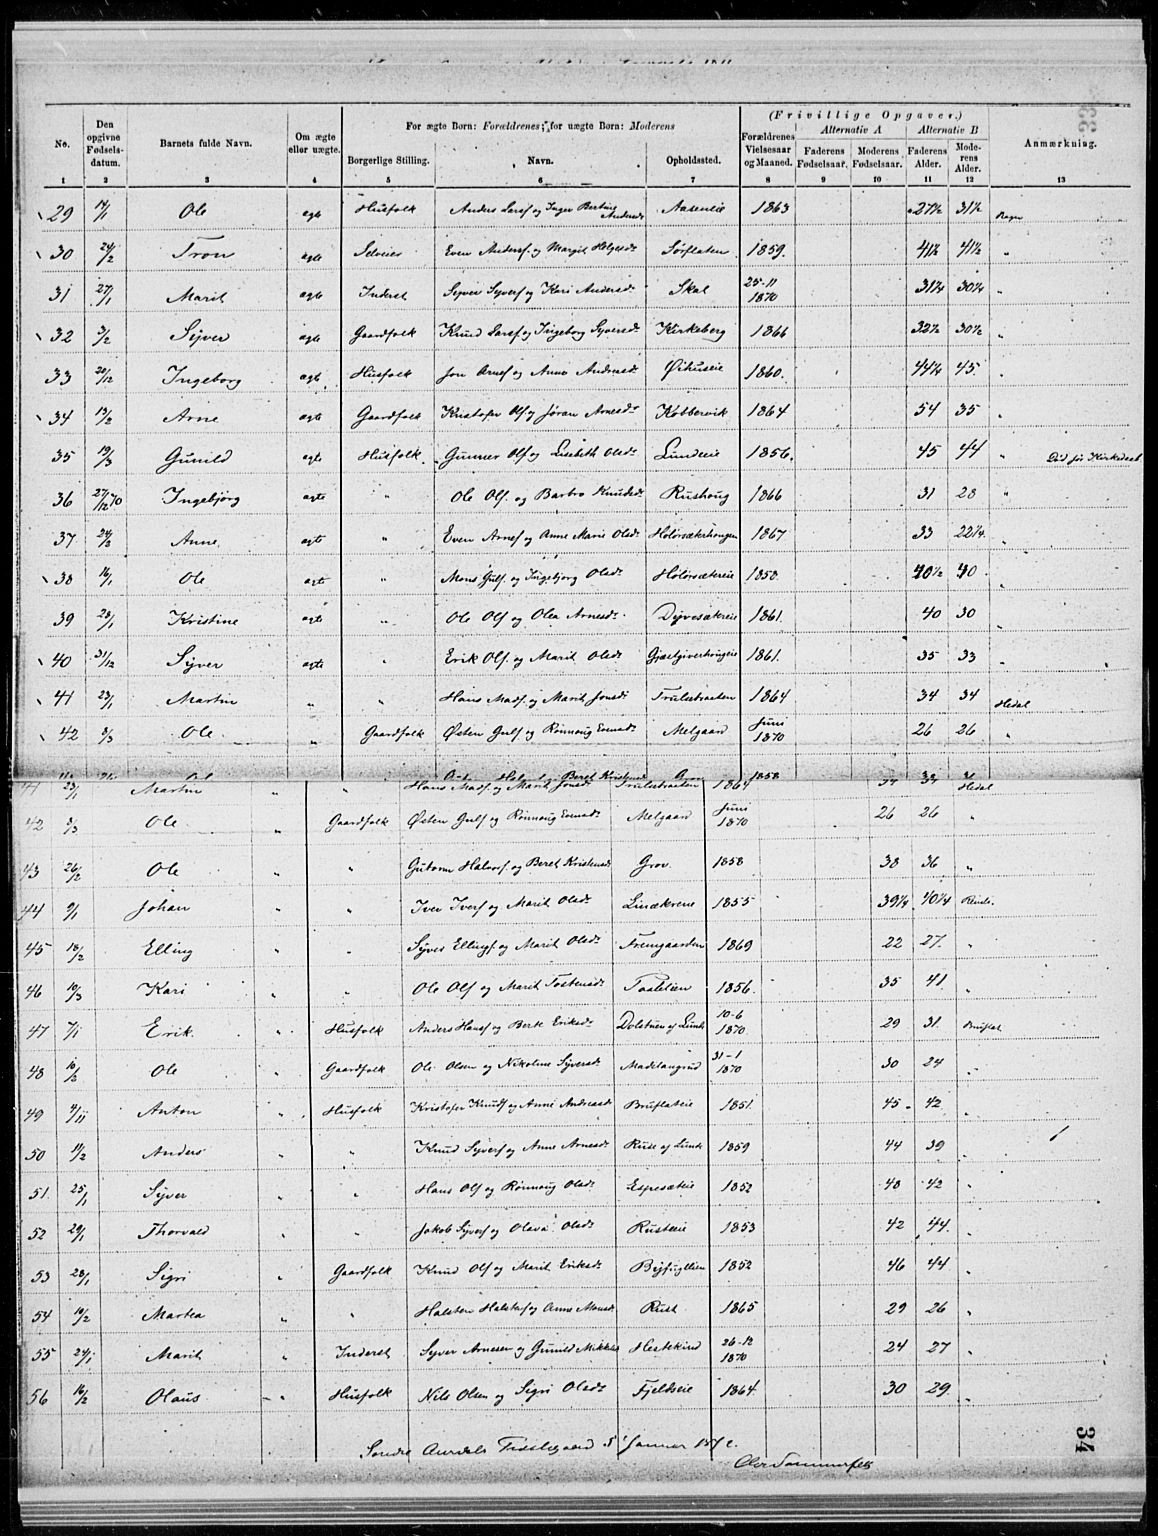 33
(Frivillige Opgaver.)
Den opgivne Fødsels-datum.
For ægte Børn: Forældrenes; for uægte Børn: Moderens
Alternativ A Alternativ B
No. Barnets fulde Navn. Om ægte eller uægte. Borgerlige Stilling. Navn. Opholdssted. Forældrenes Vielsesaar og Maaned. Faderens Fødselsaar. Moderens Fødselsaar. Faderens Alder. Moderens Alder. Anmærkning.
1 2 3 4 5 6 7 8 9 10 11 12 13
29 14/1 Ole ægte Husfolk Anders Larsf og Inger Bertine Andersd: Aaseneie 1863 27½ 31½ Bagn
30 24/2 Tron ægte Selveier Even Andersf. og Margit Helgesd: Sørflaten 1859. 41½ 41½ "
31 27/1 Marit ægte Inderst Syver Syversf og Kari Andersd: Skal 25-11 1870 31¼ 30¼ "
32 3/2 Syver ægte Gaardfolk Knud Larsf og Ingeborg Syversd: Kirkeberg 1866 32½ 30½ "
33 20/12 Ingeborg ægte Husfolk Jon Arnesf og Anne Andersd: Øihuseie 1860. 44¼ 45. "
34 13/2 Arne ægte Gaardfolk Kristofer Olsf og Jøran Arnesd: Købbervik 1864 54 35 "
35 19/3 Gunild ægte Husfolk Gunner Olsf og Lisebeth Olsd: Lundeeie 1856. 45 44 " Død før Kirkedaab
36 27/12 70 Ingebjørg ægte " Ole Olsf. og Barbro Knudsd: Rushoug 1866 31 28 "
37 24/2 Anne ægte " Even Arnesf og Anne Marie Olsd: Holorsæterhougen 1867 33 22¼. "
38 16/1 Ole ægte " Mons Gulsf. og Ingebjørg Olsd: Holorsætereie 1858. 40½ 40 "
39 28/1 Kristine ægte " Ole Olsf og Olea Arnesd: Dyvesækreie 1861. 40 30 "
40 31/12 Syver ægte " Erik Olsf. og Marit Olsd: Gjæstgiverhougeie 1861. 35 33 "
41 23/1 Martin " " Hans Madsf. og Marit Jonsd: Trulsbraaten 1864 34 34 Hedal
42 3/3 Ole " Gaardfolk Østen Gulsf og Rønnoug Evensd: Melgaard Juni 1870 26 26 "
Beret Kristensd: Grov 1858
41 23/1 Martin " " Hans Madsf. og Marit Jonsd: Trulsbraaten 1864 34 34 Hedal
42 3/3 Ole " Gaardfolk Østen Gulsf og Rønnoug Evensd: Melgaard Juni 1870 26 26 "
43 26/2 Ole " Gutorm Halvorsf. og Beret Kristensd: Grov 1858 38 36 "
44 9/1 Johan " " Iver Iversf og Marit Olsd: Linækrene 1855 39¼ 40¼ Reinli.
45 18/2 Elling " " Syver Ellingsf og Marit Olsd: Fremgaarden 1869 22 27. "
46 19/3 Kari " " Ole Olsf og Marit Tostensd: Paaletien 1856. 35 41 "
47 7/1 Erik. " Husfolk Anders Hansf og Berte Eriksd: Dolstuen af Lunde 10-6 1870. 29 31. Bruflat
48 10/2 Ole " Gaardfolk Ole Olsen og Nikoline Syversd: Madslangrud 31-1 1870 30 24 "
49 4/11 Anton " Husfolk Kristofer Knudsf og Anne Andersd: Bruflateie 1851. 45. 42 "
50 11/2 Anders " " Knud Syversf og Anne Arnesd: Rude af Lunde 1859 44 39 "
51 25/1 Syver " " Hans Olsf og Rønnoug Olsd: Espesæteie 1852 48 42 "
52 29/1 Thorvald " " Jakob Syversf og Olava Olsd: Rusteeie 1853 42 44. "
53 28/1 Sigri " Gaardfolk Knud Olsf og Marit Eriksd: 1852 46 44 "
54 19/2 Martea " " Halsten Halstensf og Anne Monsd: Rust 1865 29 26 "
55 24/1 Marit " Inderst Syver Arnesen og Gunild Mikkelsd: Hestekind 26-12 1870 24 27 "
56 16/2 Olaus " Husfolk Nils Olsen og Sigri Olsd: Fjeldseie 1864. 30 29. "
34
Søndre Aurdals Præstegaard 5' Januar 1872.
Ole Sommerfelt